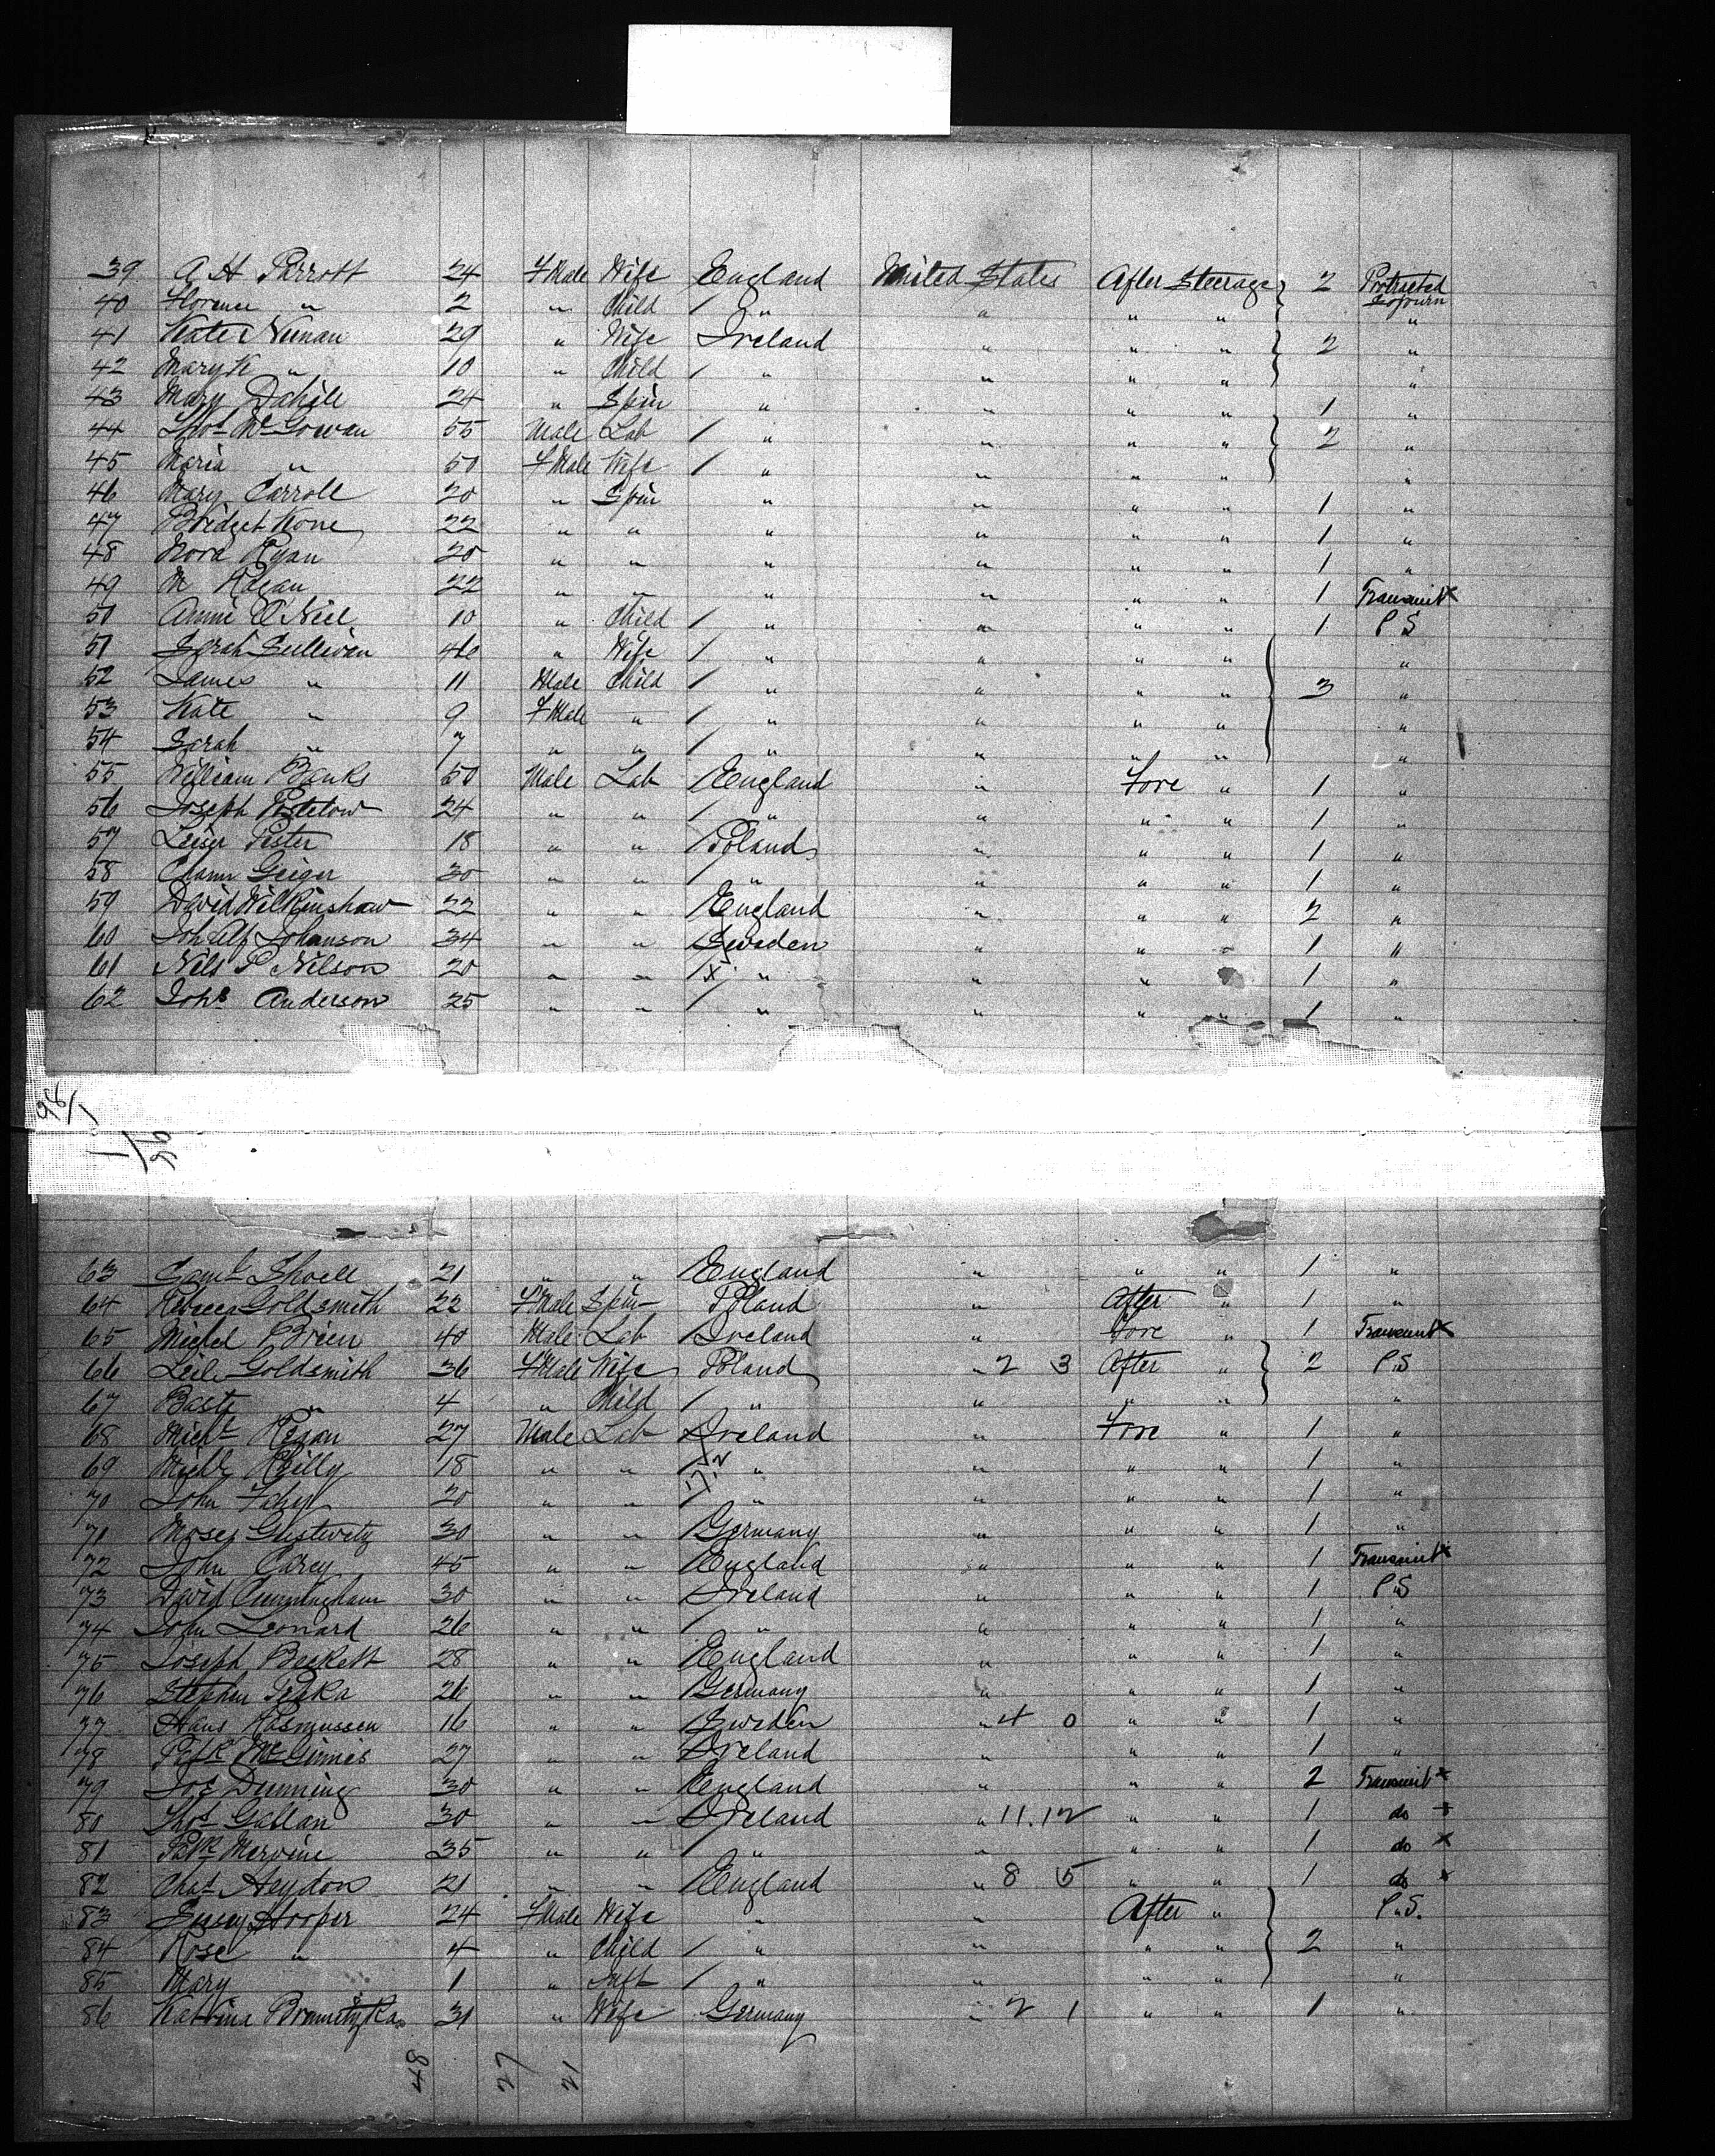 39 A H Parrott 24 F Male Wife England United States After Steerage 2 Protracted Sojourn
40 Florence " 2 " Child / " " " " "
41 Kate Neenan 29 " Wife Ireland " " " 2 "
42 Mary K " 10 " Child / " " " " "
43 Mary Dahill 24 " Spin " " " " 1 "
44 Thos McGowan 55 Male Lab / " " " " 2 "
45 Maria " 50 F Male Wife / " " " " "
46 Mary Carroll 20 " Spin " " " " 1 "
47 Bridget Kone 22 " " " " " " 1 "
48 Nora Ryan 20 " " " " " " 1 "
49 M Regan 22 " " " " " " 1 Transient x
50 Annie O'Niel 10 " Child / " " " " 1 P S
51 Sarah Sullivan 46 " Wife / " " " " "
52 James " 11 Male Child / " " " " 3 "
53 Kate " 9 F Male " / " " " " "
54 Sarah " 7 " " / " " " " "
55 William Banks 50 Male Lab England " Fore " 1 "
56 Joseph 24 " " / " " " " 1 "
57 Leiser Pester 18 " " Poland " " " 1 "
58 Geiger 30 " " / " " " " 1 "
59 David Wilkinshaw 22 " " England " " " 2 "
60 Joh Alf Johanson 34 " " Sweden " " " 1 "
61 Nils P Nilson 20 " " / x " " " " 1 "
62 Johs Anderson 25 " " / " " " " 1 "
98/1
1/96
63 Saml Shoell 21 " " England " " " 1 "
64 Rebecca Goldsmith 22 F Male Spin Poland " After " 1 "
65 Michel Brien 40 Male Lab Ireland " Fore " 1 Transient x
66 Goldsmith 36 F Male Wife Poland " 2 3 After " 2 P.S
67 " 4 " Child / " " " " "
68 Michl Regan 27 Male Lab Ireland " Fore " 1 "
69 Michl Reilly 18 " " / " " " " 1 "
70 John Fahey 20 " " / " " " " 1 "
71 Moses 30 " " Germany " " " 1 "
72 John Carey 45 " " England " " " 1 Transient x
73 David Cunningham 30 " " Ireland " " " 1 P.S
74 John Leonard 26 " " / " " " " 1 "
75 Joseph Beckett 28 " " England " " " 1 "
76 Stephen 26 " " Germany " " " 1 "
77 Hans Rasmussen 16 " " Sweden " 4 0 " " 1 "
78 Patk McGinnis 27 " " Ireland " " " 1 "
79 Jos Dunning 30 " " England " " " 2 Transient x
80 Thos Gallan 30 " " Ireland " 11.12 " " 1 do x
81 Patk Mervine 35 " " / " " " " 1 do x
82 Chas Heydon 21 " " England " 8 5 " " 1 do x
83 Hooper 24 F Male Wife " " After " P.S.
84 Rose " 4 " Child / " " " " 2 "
85 Mary 1 " Inft / " " " " "
86 Katrina 31 " Wife Germany " 2 1 " " 1 "
48 27 21